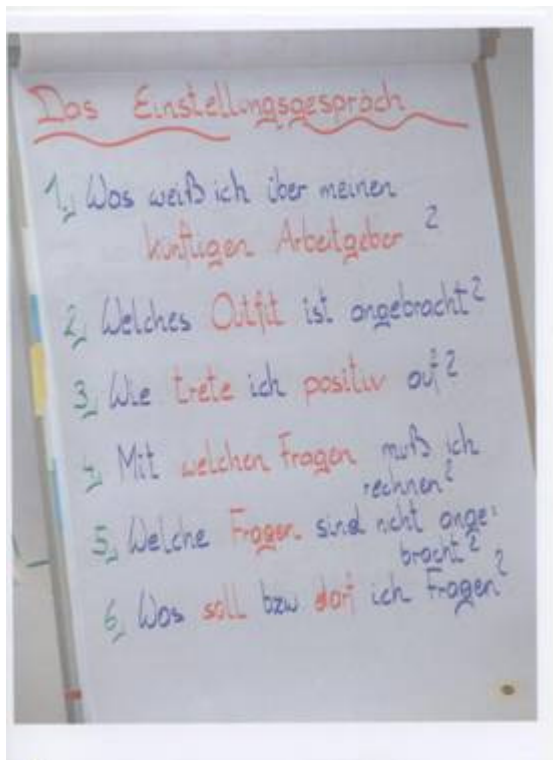 Das Einstellungsgespräch
1., Was weiß ich über meinen
künftigen Arbeitgeber ?
2., Welches Outfit ist angebracht?
3., Wie trete ich positiv auf?
4., Mit welchen Fragen muß ich
rechnen?
5., Welche Fragen sind nicht ange-
bracht?
6., Was soll bzw darf ich Fragen?